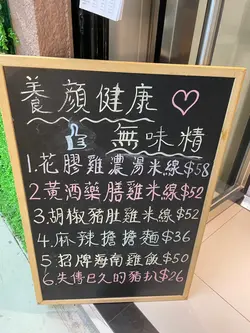 養顏健康
無味精
1.花膠雞濃湯米線$58
2.黃酒藥膳雞米線$52
3.胡椒豬肚雞米線$52
4.麻辣擔擔麵$36
5.招牌海南雞飯$50
6.失傳已久的豬扒$26